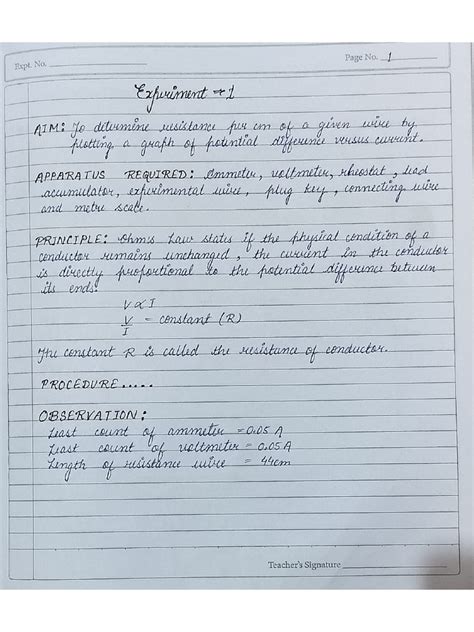 Expt. No.
Page No. 1
Experiment - 1
AIM: To determine resistance per cm of a given wire by
plotting a graph of potential difference versus current.
APPARATUS REQUIRED: Ammeter, voltmeter, rheostat, lead
acumulator, experimental wire, plug key, connecting wire
and metre scale.
PRINCIPLE: Ohms Law states if the physical condition of a
conductor remains unchanged, the current in the conductor
is directly proportional to the potential difference between
its ends:
V ∝ I
V/I = constant (R)
The constant R is called the resistance of conductor.
PROCEDURE.....
OBSERVATION:
Least count of ammeter = 0.05 A
Least count of voltmeter = 0.05 A
Length of resistance wire = 44cm
Teacher's Signature